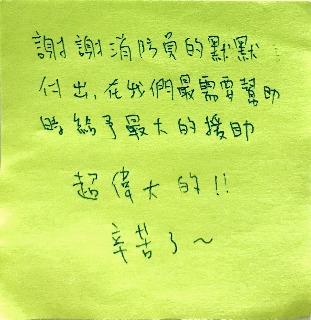 謝謝消防員的默默
付出,在我們最需要幫助
時給予最大的援助
超偉大的!!
辛苦了~